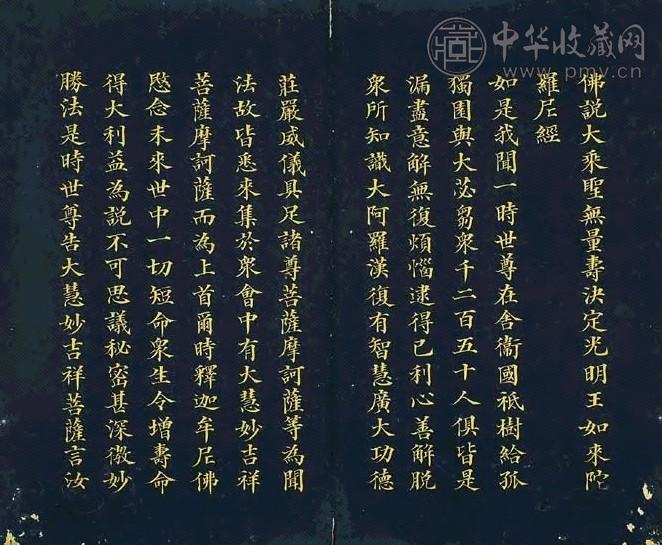 中华收藏网
www.pmv.cn
佛説大乘聖無量壽決定光明王如來陀
羅尼經
如是我聞一時世尊在舍衞國祇樹給孤
獨園與大苾芻衆千二百五十人俱皆是
漏盡意解無復煩惱逮得己利心善解脱
衆所知識大阿羅漢復有智慧廣大功德
莊嚴威儀具足諸尊菩薩摩訶薩等為聞
法故皆悉來集於衆會中有大慧妙吉祥
菩薩摩訶薩而為上首爾時釋迦牟尼佛
愍念未來世中一切短命衆生令增壽命
得大利益為説不可思議秘密甚深微妙
勝法是時世尊告大慧妙吉祥菩薩言汝